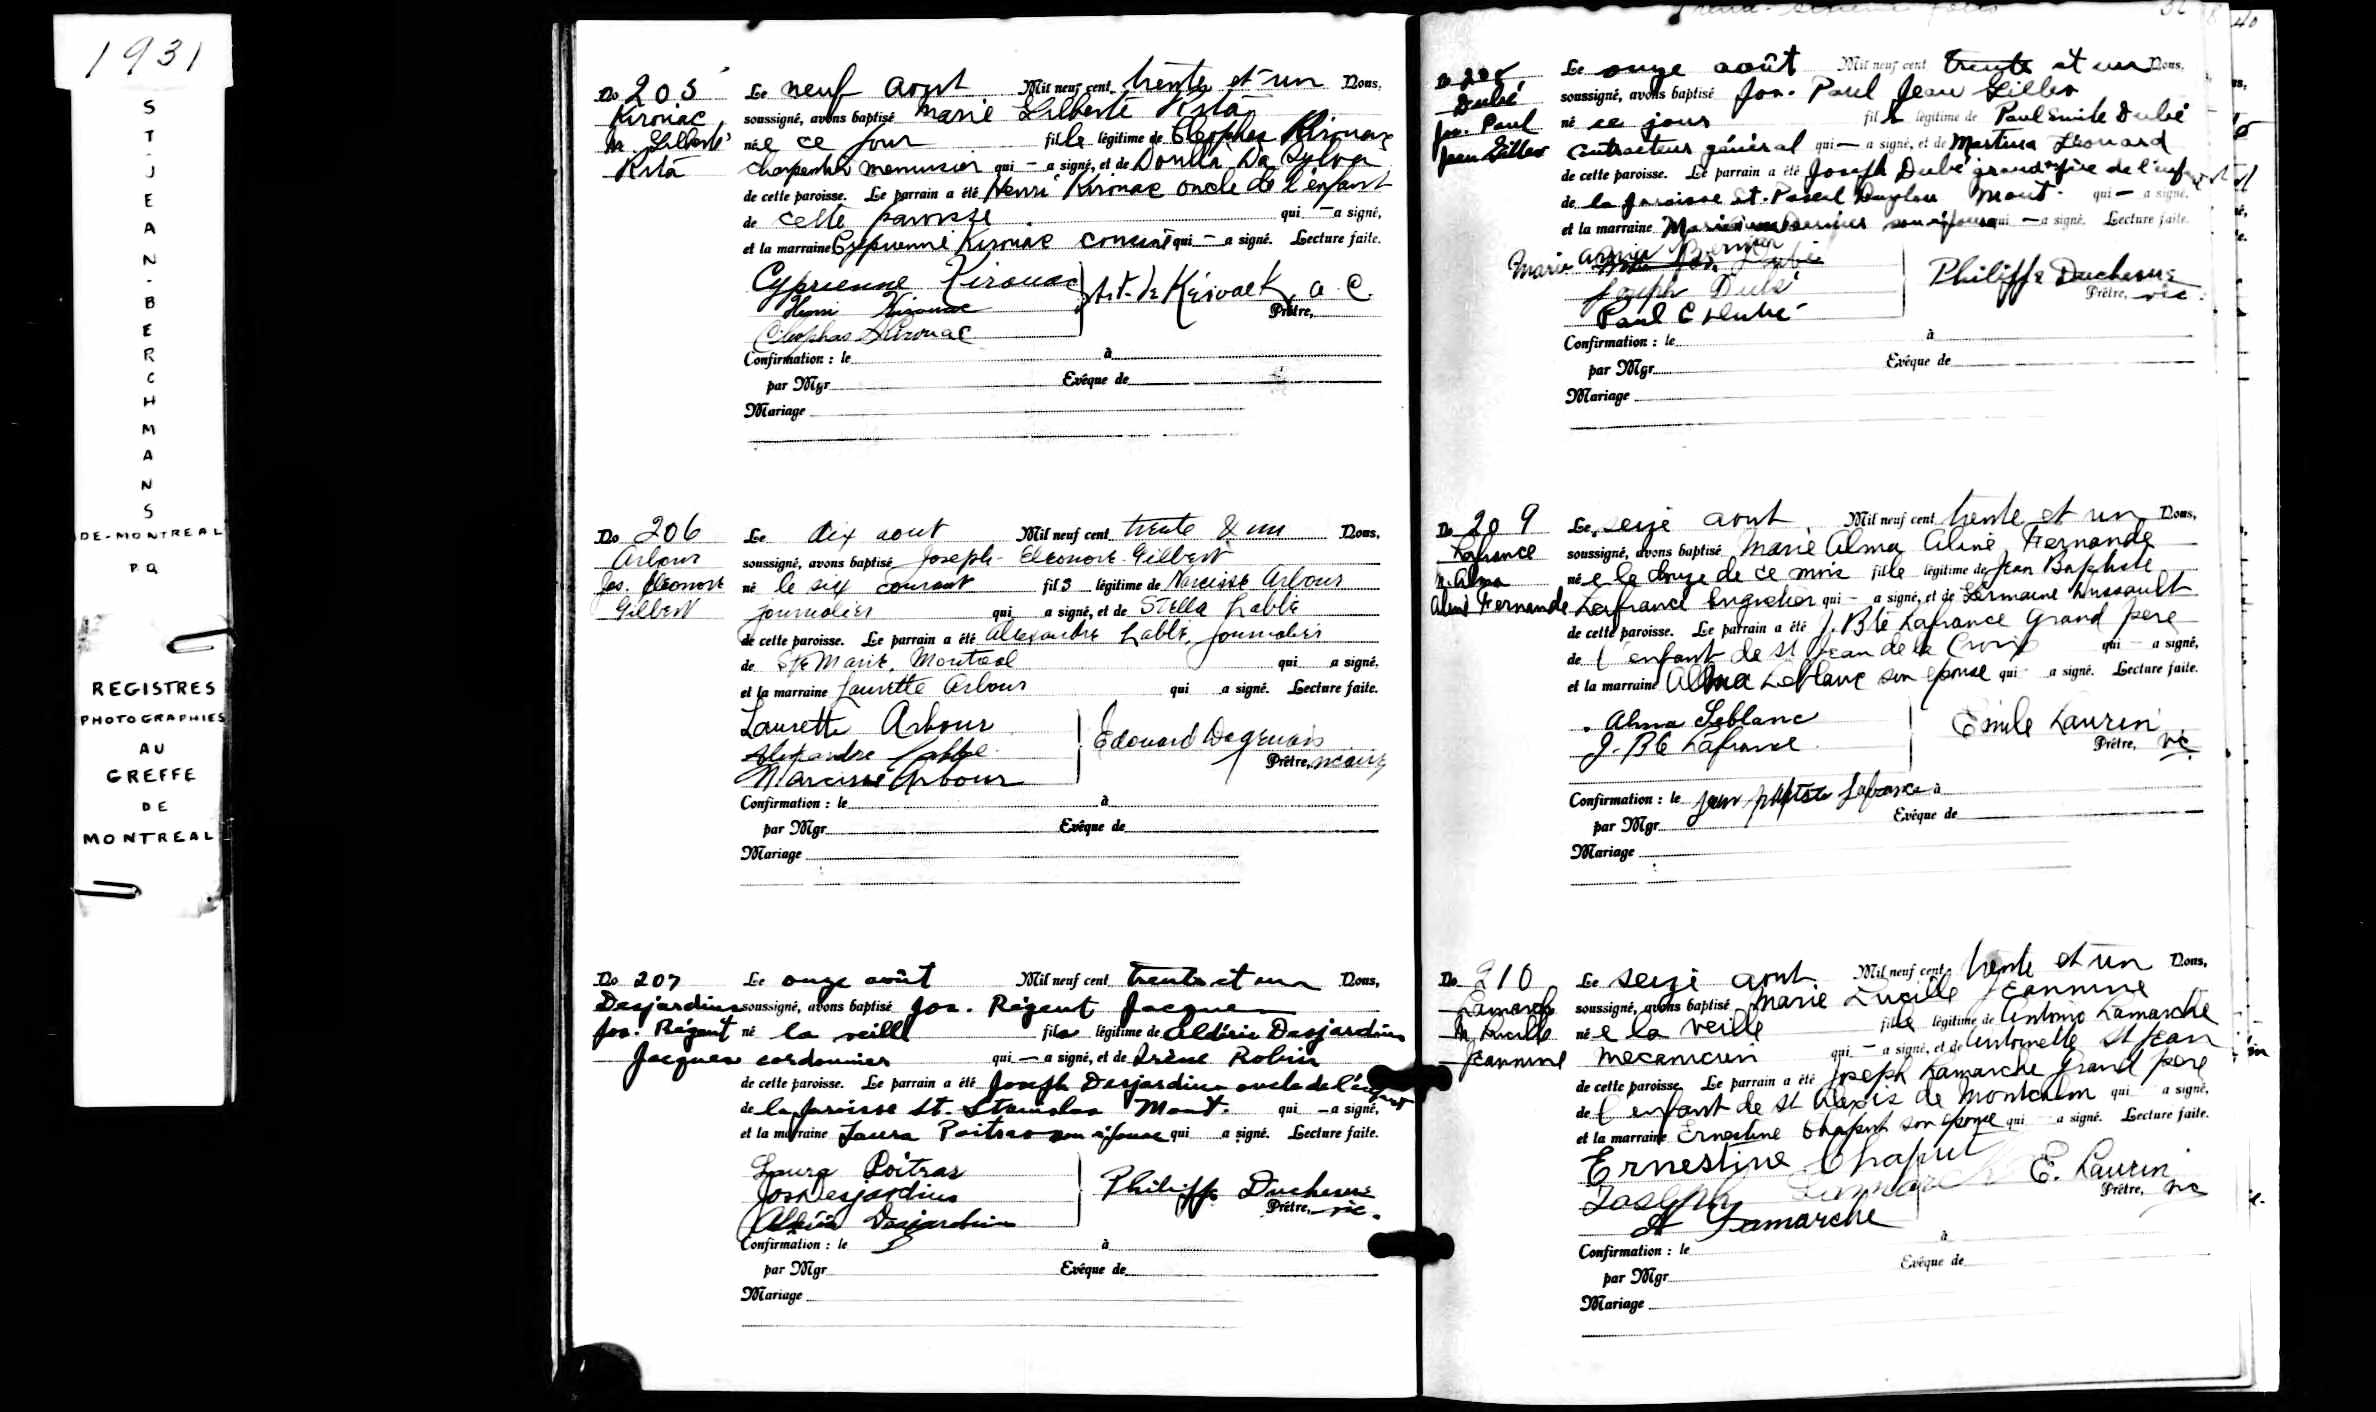 1931
ST-JEAN-BERCHMANS
DE-MONTREAL
PQ
REGISTRES
PHOTOGRAPHIES
AU
GREFFE
DE
MONTREAL
No 205
Kirouac
Rita
Le neuf aout Mil neuf cent trente et un Nous,
soussigné, avons baptisé Marie Gilberte Rita
née ce jour fille légitime de Cléophas Kirouac
charpentier menuisier qui — a signé, et de Donilla Da Sylva
de cette paroisse. Le parrain a été Henri Kirouac oncle de l'enfant
de cette paroisse qui — a signé,
et la marraine Cyprienne Kirouac qui — a signé. Lecture faite.
Cyprienne Kirouac
Henri Kirouac
Cléophas Kirouac
Prêtre,
Confirmation : le à
par Mgr Evêque de
Mariage
No 206
Arbour
Jos. Eleonore
Gilbert
Le dix aout Mil neuf cent trente & un Nous,
soussigné, avons baptisé Joseph-Eleonore-Gilbert
né le six courant fils légitime de Narcisse Arbour
journalier qui a signé, et de Stella Labbé
de cette paroisse. Le parrain a été Alexandre Labbé, journalier
de Ste Marie, Montreal qui a signé,
et la marraine Laurette Arbour qui a signé. Lecture faite.
Laurette Arbour
Alexandre Labbé
Narcisse Arbour
Edouard Dagenais
Prêtre, vicaire
Confirmation : le à
par Mgr Evêque de
Mariage
No 207
Desjardins
Jos. Régent
Jacques
Le onze août Mil neuf cent trente et un Nous,
soussigné, avons baptisé Jos. Régent Jacques
né la veille fils légitime de Aldéric Desjardins
cordonnier qui — a signé, et de Irène Robin
de cette paroisse. Le parrain a été Joseph Desjardins oncle de l'enfant
de la paroisse St. Stanislas Mont. qui — a signé,
et la marraine Laura Poitras son épouse qui a signé. Lecture faite.
Laura Poitras
Jos Desjardins
Aldéric Desjardins
Philippe Duchesne
Prêtre, vic.
Confirmation : le à
par Mgr Evêque de
Mariage
No 208
Dubé
Jos. Paul
Jean Gilles
Le onze août Mil neuf cent trente et un Nous,
soussigné, avons baptisé Jos. Paul Jean Gilles
né ce jour fils légitime de Paul Emile Dubé
contracteur général qui — a signé, et de Martina Léonard
de cette paroisse. Le parrain a été Joseph Dubé grand-père de l'enfant
de la paroisse St. Pascal Baylon Mont. qui — a signé,
et la marraine Marie Bernier son épouse qui — a signé. Lecture faite.
Marie Bernier
Joseph Dubé
Paul E Dubé
Philippe Duchesne
Prêtre, vic.
Confirmation : le à
par Mgr Evêque de
Mariage
No 209
Lafrance
M. Alma
Aline Fernande
Le seize aout Mil neuf cent trente et un Nous,
soussigné, avons baptisé Marie Alma Aline Fernande
née le douze de ce mois fille légitime de Jean Baptiste
Lafrance qui — a signé, et de Germaine Dussault
de cette paroisse. Le parrain a été J. Bte Lafrance Grand pere
de l'enfant de St Jean de la Croix qui — a signé,
et la marraine Alma Leblanc son épouse qui a signé. Lecture faite.
Alma Leblanc
J. Bte Lafrance
Emile Laurin
Prêtre, vic.
Confirmation : le Jean Baptiste Lafrance à
par Mgr Evêque de
Mariage
No 210
Lamarche
M. Lucille
Jeannine
Le seize aout Mil neuf cent trente et un Nous,
soussigné, avons baptisé Marie Lucille Jeannine
née la veille fille légitime de Antonio Lamarche
mecanicien qui — a signé, et de Antoinette St Jean
de cette paroisse. Le parrain a été Joseph Lamarche Grand pere
de l'enfant de St Alexis de Montcalm qui a signé,
et la marraine Ernestine Chaput son épouse qui a signé. Lecture faite.
Ernestine Chaput
Joseph Lamarche
A Lamarche
E. Laurin
Prêtre, vic
Confirmation : le à
par Mgr Evêque de
Mariage